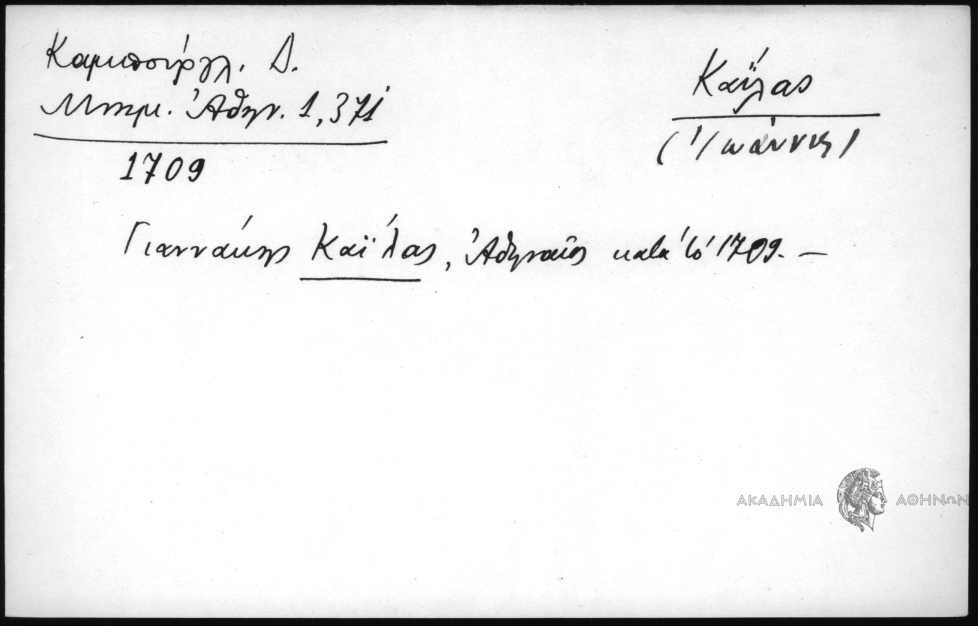 Καμπούργλ. Δ.
Μνημ. Ἀθην. 1,371
1709
Καΐλας
(Ἰωάννης)
Γιαννάκης Καΐλας, Ἀθηναῖος κατὰ τὸ 1709. —
ΑΚΑΔΗΜΙΑ ΑΘΗΝΩΝ